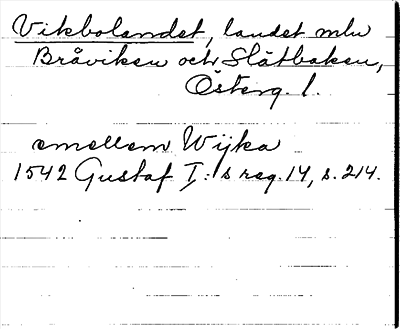 Vikbolandet, landet mln
Bråviken och Slätbaken,
Österg. l.
emellem Wijka
1542 Gustaf I:s reg. 14, s. 214.